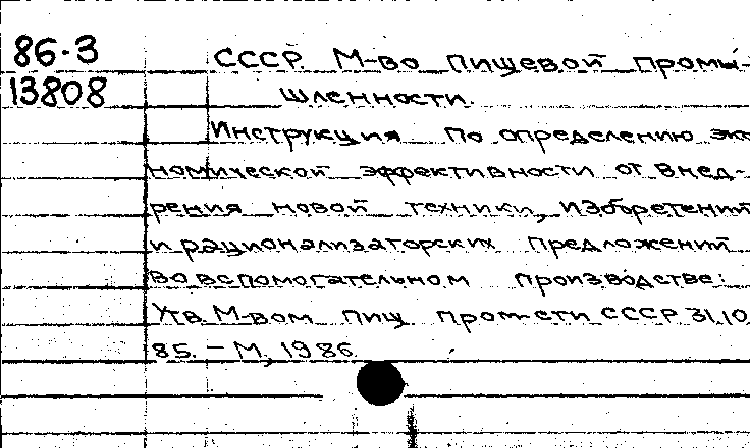 86-3 СССР. М-во пищевой промы-
13808 шленности.
Инструкция по определению эко
номической эффективности от внед-
рения новой техники, изобретений
и рационализаторских предложений
во вспомогательном производстве:
Утв. М-вом пищ. пром-сти СССР 31.10.
85. – М., 1986